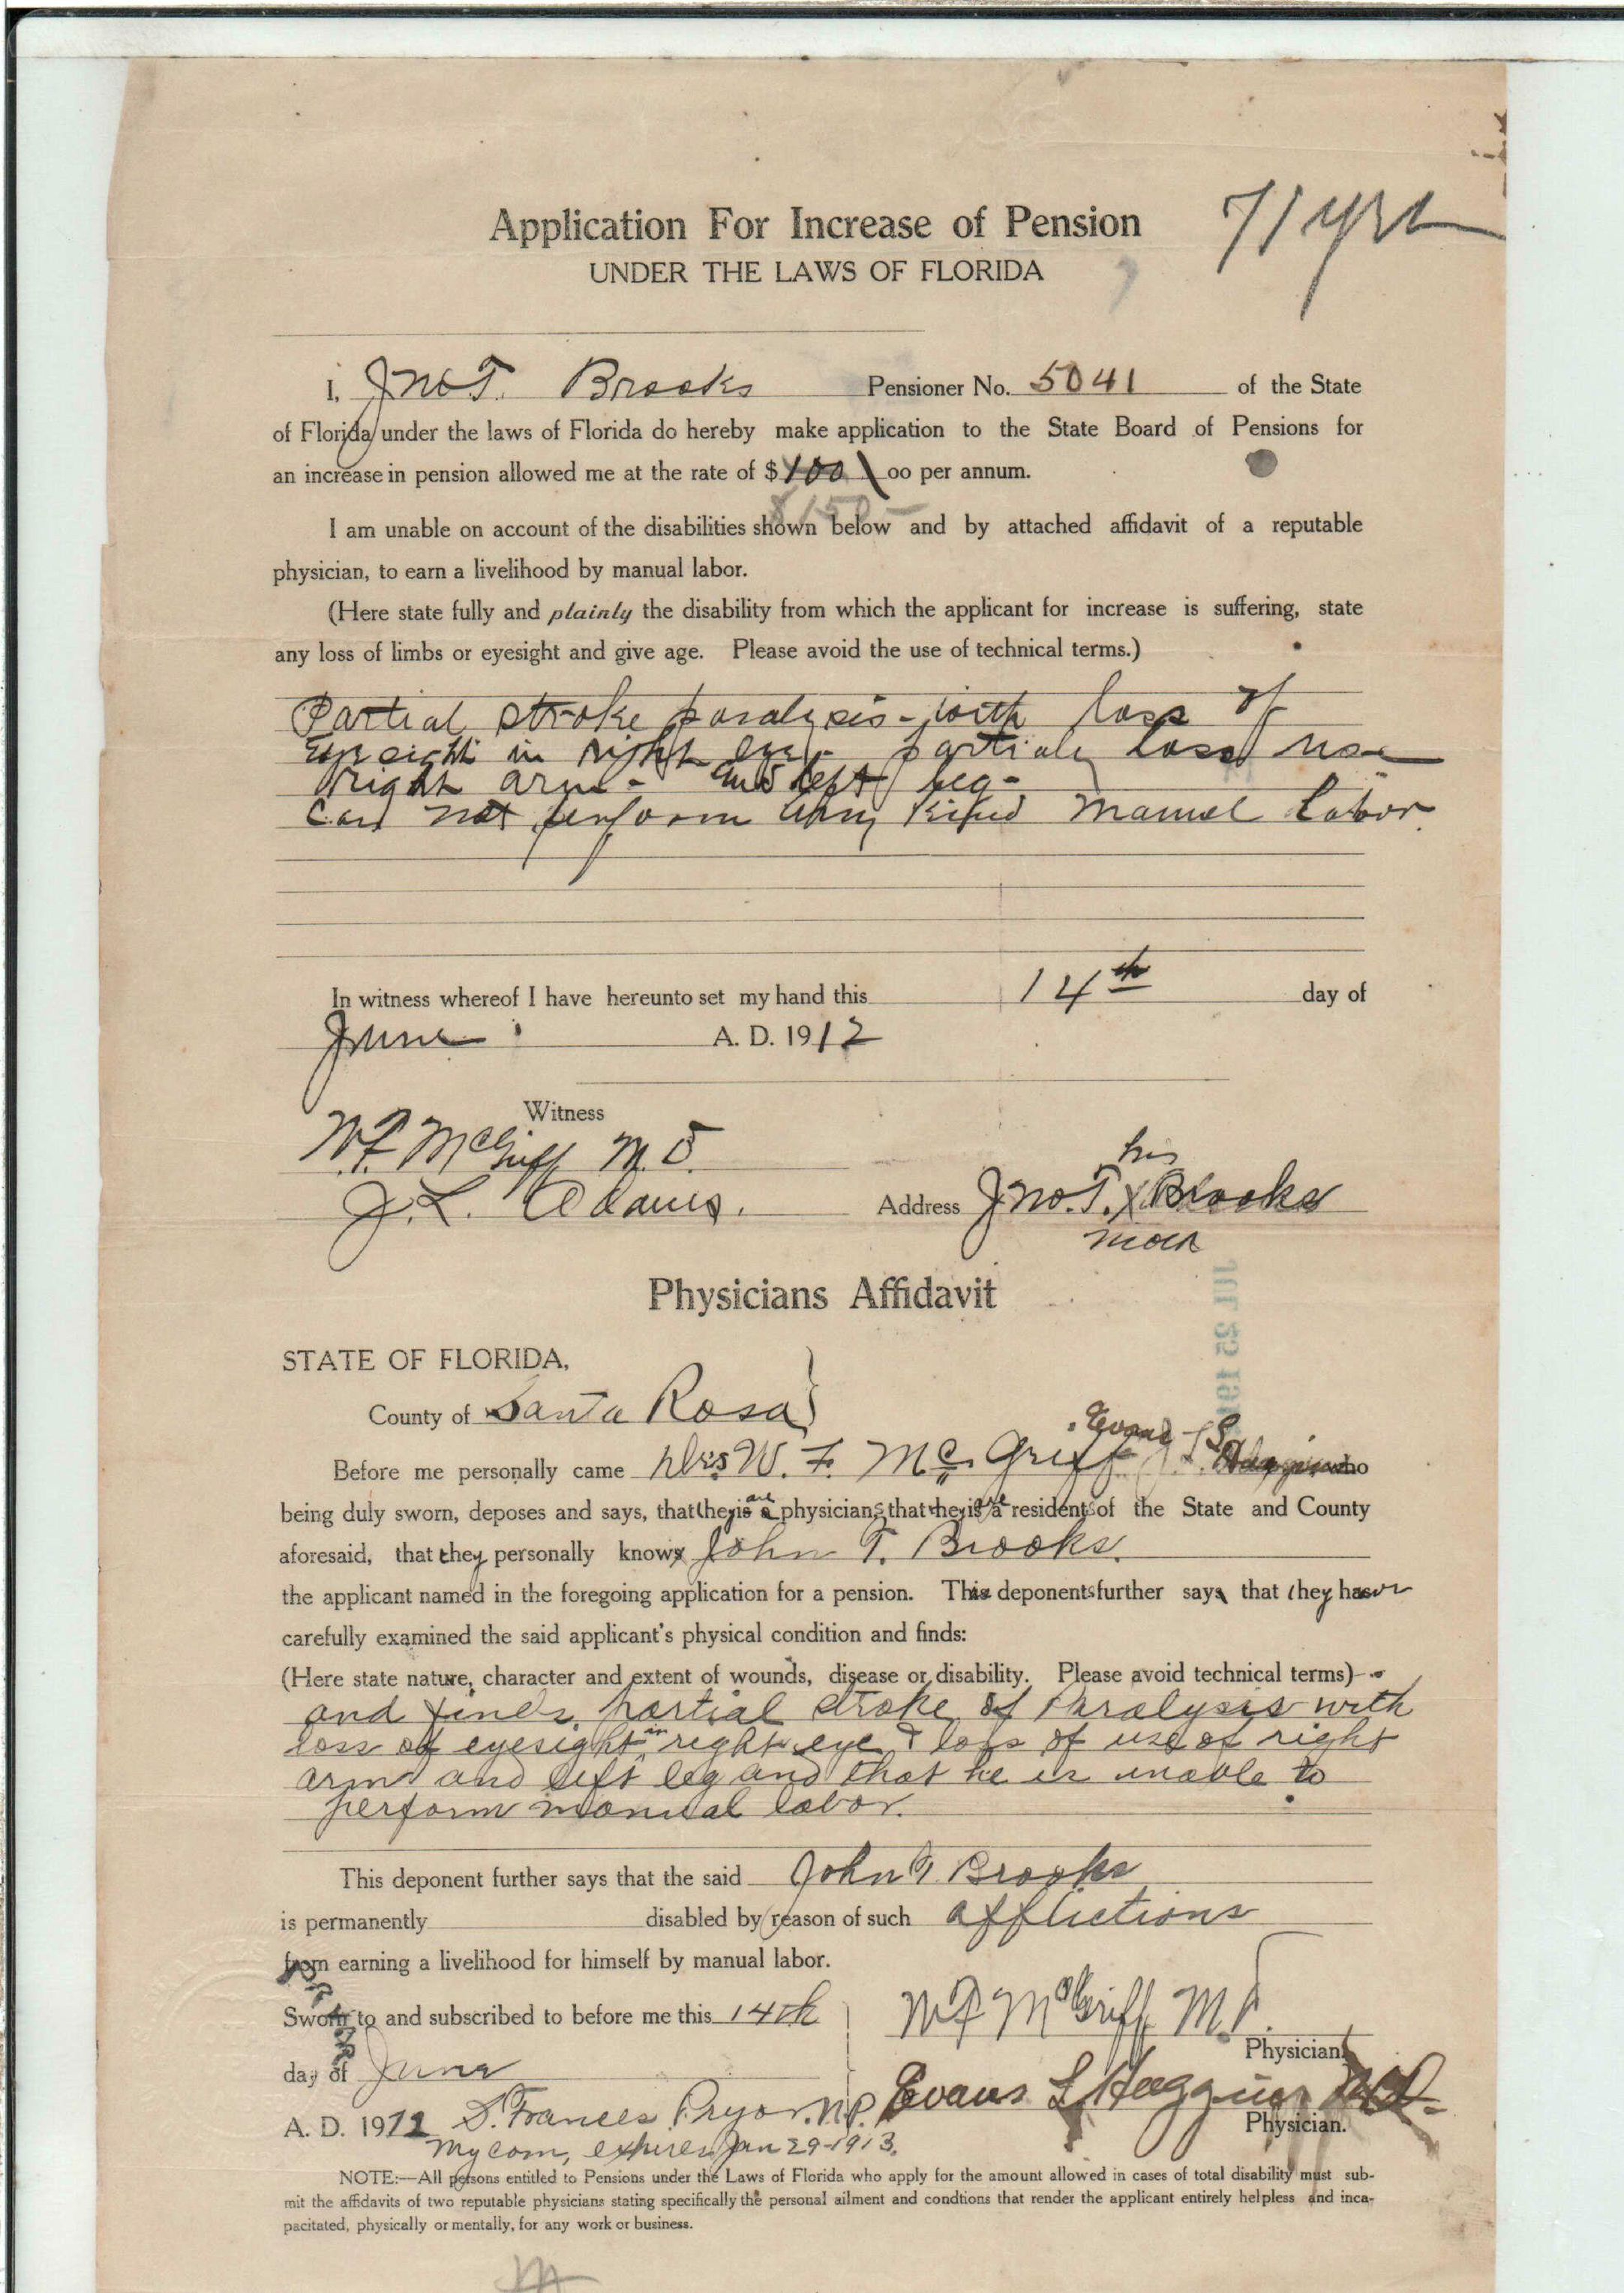 Application For Increase of Pension
71 yrs
UNDER THE LAWS OF FLORIDA
I, Jno T. Brooks Pensioner No. 5041 of the State
of Florida under the laws of Florida do hereby make application to the State Board of Pensions for
an increase in pension allowed me at the rate of $100 00 per annum.
$150-
I am unable on account of the disabilities shown below and by attached affidavit of a reputable
physician, to earn a livelihood by manual labor.
(Here state fully and plainly the disability from which the applicant for increase is suffering, state
any loss of limbs or eyesight and give age. Please avoid the use of technical terms.)
Partial stroke paralysis - with loss of
eyesight in right eye - partial loss use
right arm - and left leg -
Can not perform any kind manuel labor.
In witness whereof I have hereunto set my hand this 14th day of
June A. D. 1912
Witness
W F McGriff M.D.
his
J. L. Adams. Address Jno. T. X Brooks
mark
Physicians Affidavit
JUL 25 191
STATE OF FLORIDA,
County of Santa Rosa
Evans
Before me personally came Drs W. F. McGriff who
being duly sworn, deposes and says, that they is are a physicians that they is are a residents of the State and County
aforesaid, that they personally know John T. Brooks.
the applicant named in the foregoing application for a pension. This deponents further says that they has
carefully examined the said applicant's physical condition and finds:
(Here state nature, character and extent of wounds, disease or disability. Please avoid technical terms)
and finds partial stroke of Paralysis with
loss of eyesight in right eye & loss of use of right
arm and left leg and that he is unable to
perform manual labor.
This deponent further says that the said John T Brooks
is permanently disabled by reason of such afflictions
from earning a livelihood for himself by manual labor.
Sworn to and subscribed to before me this 14th W F McGriff M.D.
Physician
day of June
Evans L Haggins MD.
A. D. 1912 S. Frances Pryor. N.P. Physician.
My com, expires Jan 29-1913.
NOTE:—All persons entitled to Pensions under the Laws of Florida who apply for the amount allowed in cases of total disability must sub-
mit the affidavits of two reputable physicians stating specifically the personal ailment and condtions that render the applicant entirely helpless and inca-
pacitated, physically or mentally, for any work or business.